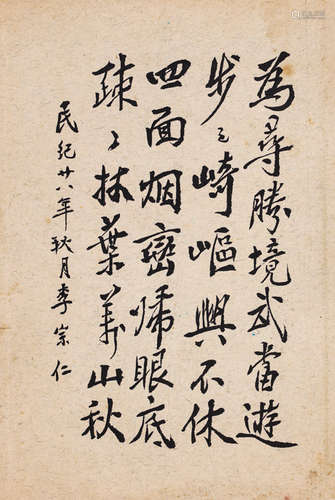 為尋勝境武當遊
步々崎嶇興不休
四面烟巒歸眼底
疎々林葉萬山秋
民紀廿八年秋月李宗仁